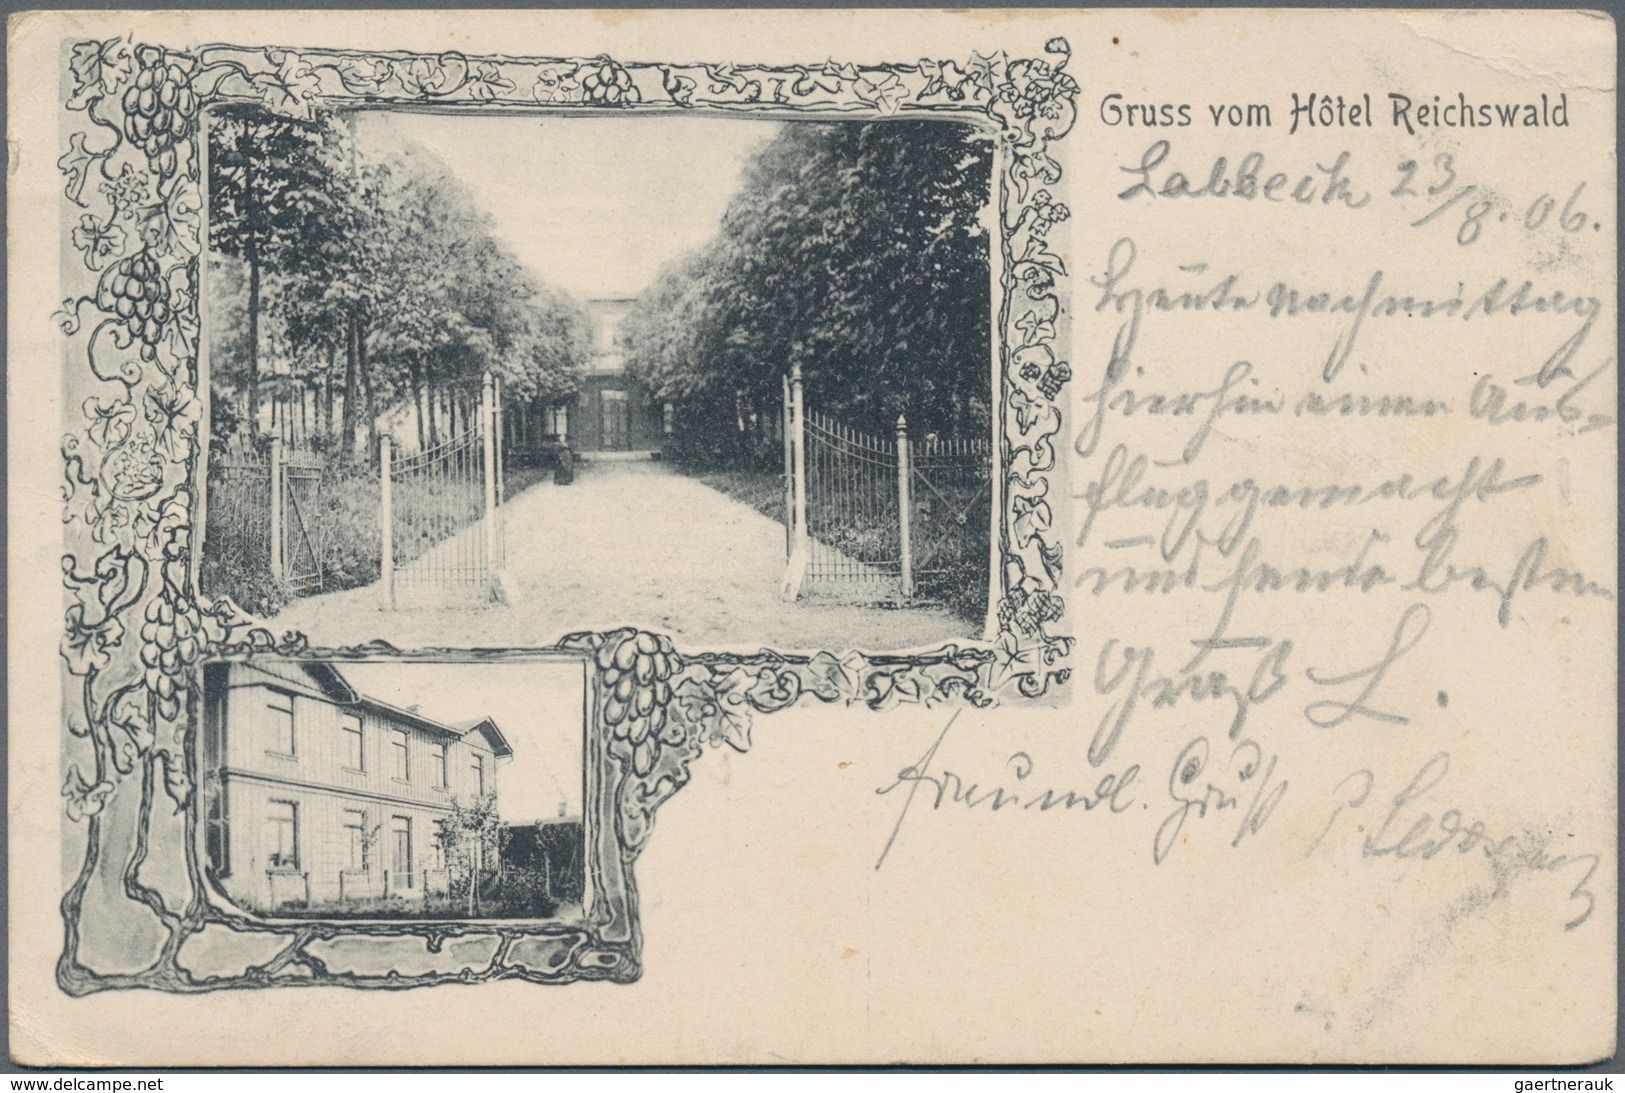 Gruss vom Hôtel Reichswald
Labbeck 23/8.06.
Heute nachmittag
hierhin einen Aus-
flug gemacht
und sende besten
Gruß L.
freundl. Gruß
www.delcampe.net
gaertnerauk